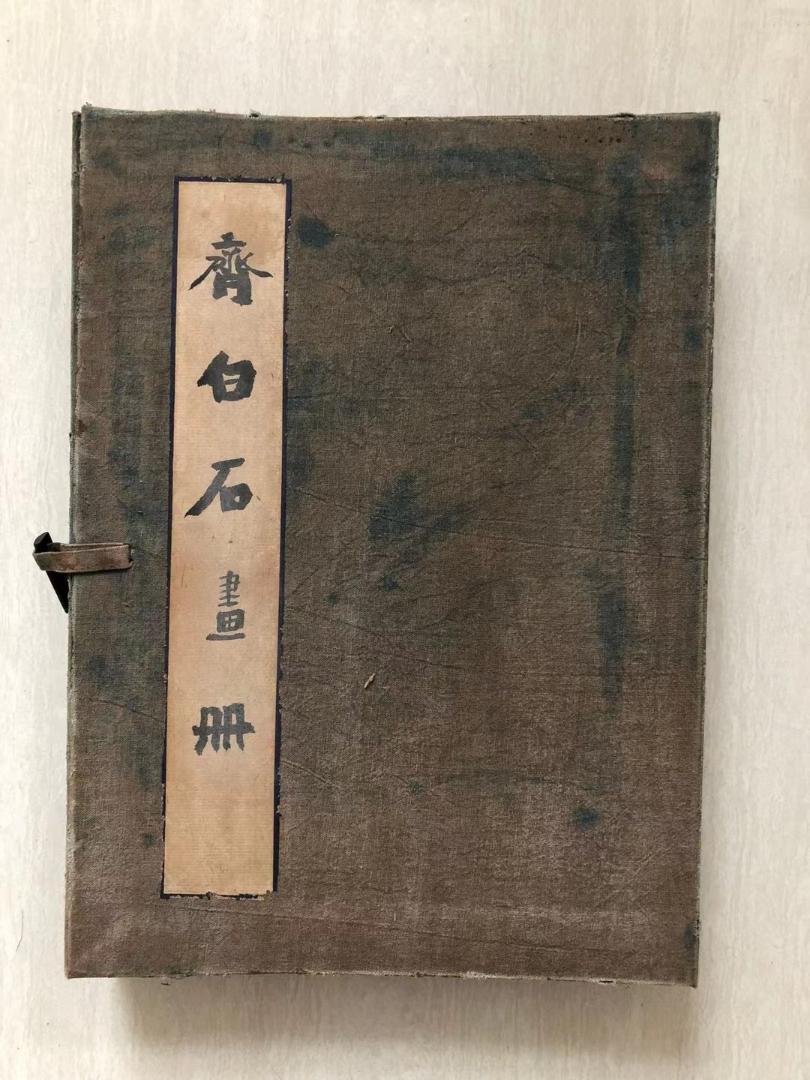 齊白石畫册